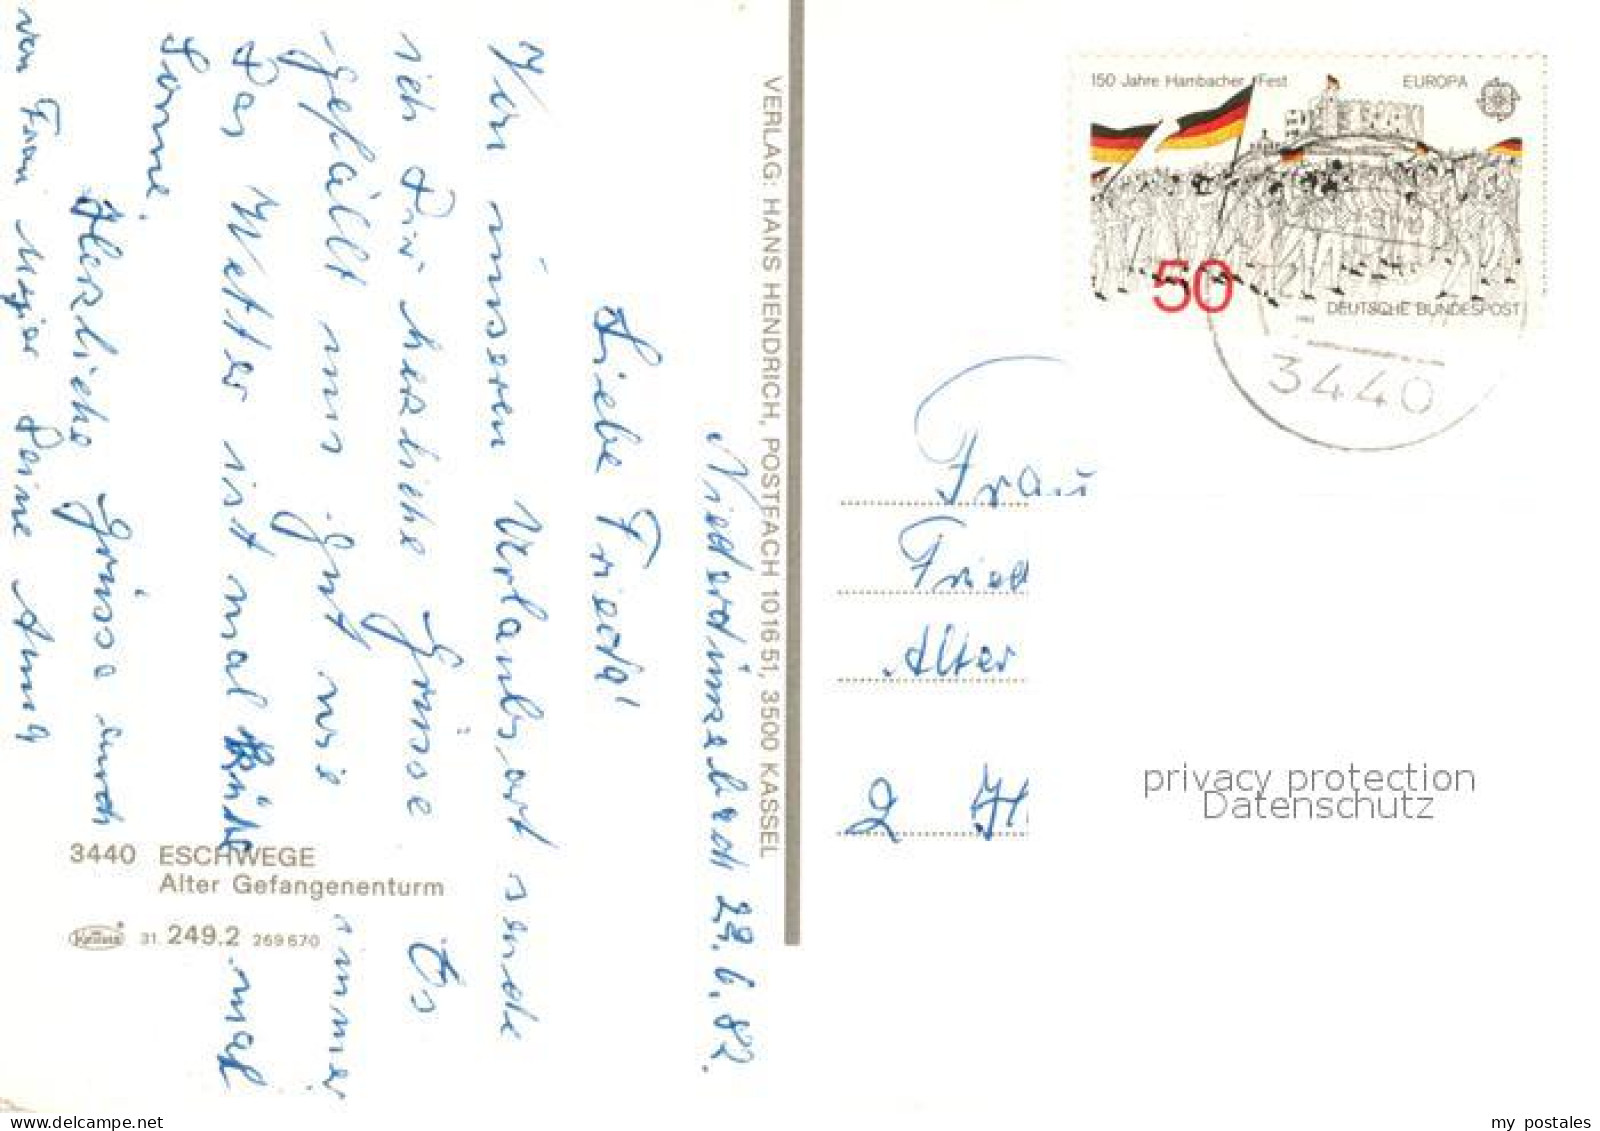 Niederdünzebach 23.6.82.
Liebe Frieda!
Von unseren Urlaubsort sende
ich Dir herzliche Grüsse Es
gefällt uns gut wie immer
Das Wetter ist mal kühl mal
Sonne.
Herzliche Grüsse auch
von Frau Meyer Deine Anna
3440 ESCHWEGE
Alter Gefangenenturm
31. 249.2 269670
VERLAG: HANS HENDRICH, POSTFACH 10 16 51, 3500 KASSEL
150 Jahre Hambacher Fest
EUROPA
50
DEUTSCHE BUNDESPOST
1982
3440
Frau
Fried
Alter
2 H
privacy protection
Datenschutz
www.delcampe.net
my_postales